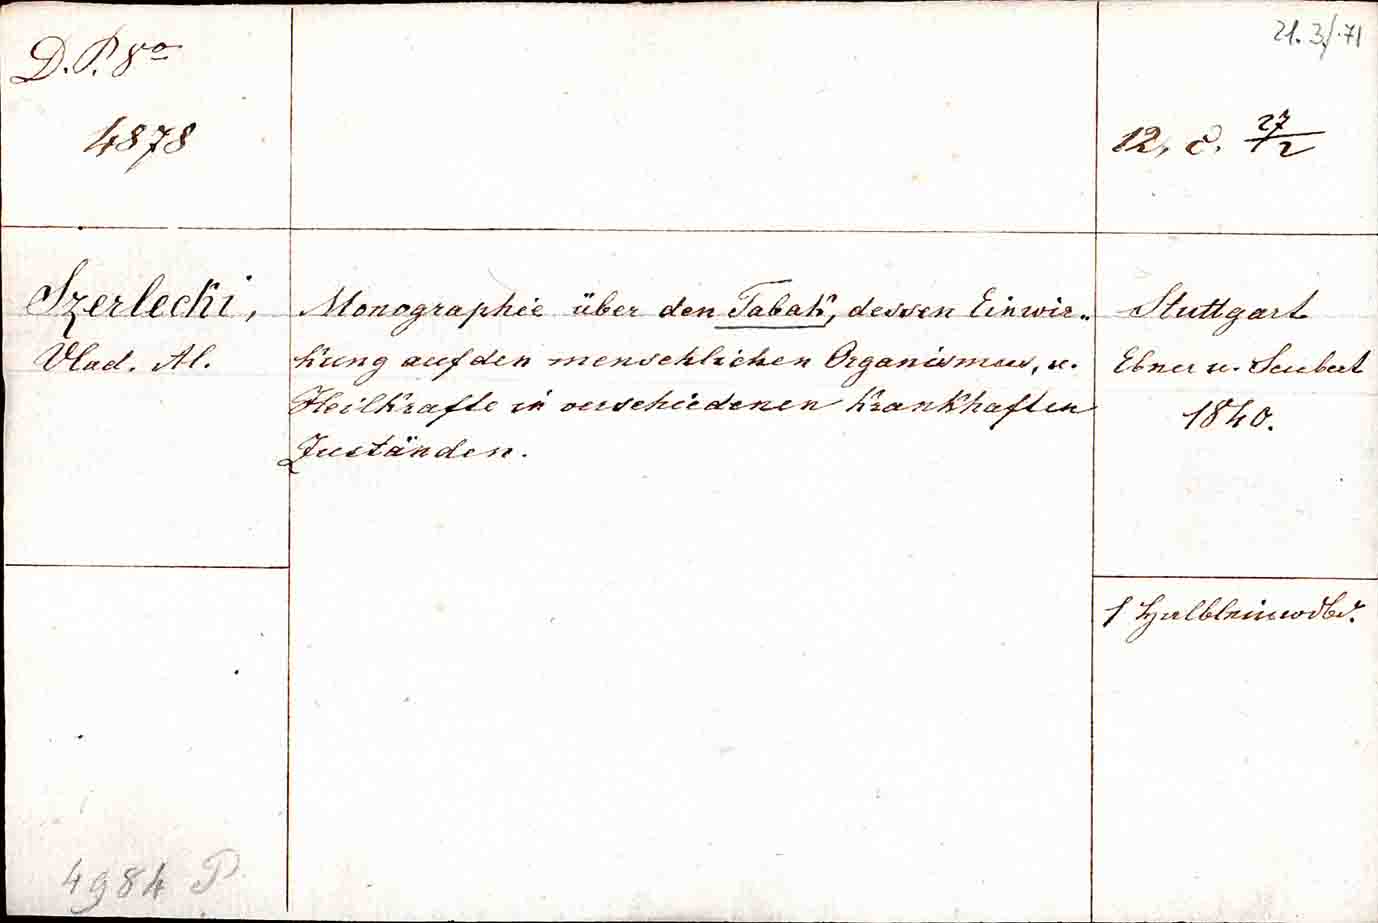 D. P. 8º
4878
21. 3./.71
12, c. 27/2
Szerlecki,
Vlad. Al.
Monographie über den Tabak, dessen Einwir„
kung auf den menschlichen Organismus, u.
Heilkrafte in verschiedenen krankhaften
Zuständen.
Stuttgart
Ebner u. Seubert
1840.
1 Halbleinwdbd.
4984 P